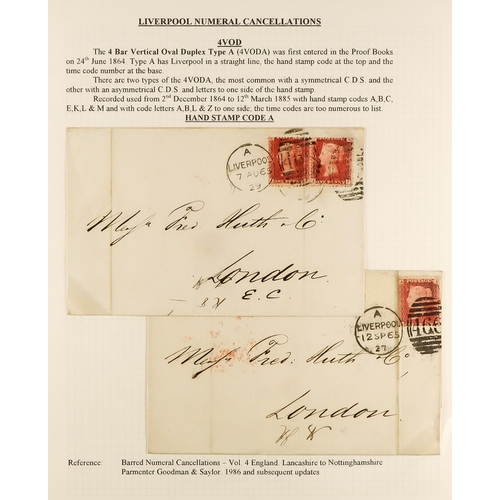 LIVERPOOL NUMERAL CANCELLATIONS
4VOD
The 4 Bar Vertical Oval Duplex Type A (4VODA) was first entered in the Proof Books
on 24th June 1864. Type A has Liverpool in a straight line, the hand stamp code at the top and the
time code number at the base.
There are two types of the 4VODA, the most common with a symmetrical C.D.S. and the
other with an asymmetrical C.D.S. and letters to one side of the hand stamp.
Recorded used from 2nd December 1864 to 12th March 1885 with hand stamp codes A,B,C,
E,K,L & M and with code letters A,B,L & Z to one side; the time codes are too numerous to list.
HAND STAMP CODE A
A
LIVERPOOL
7 AU 65
29
466
Messrs Fred Huth & Co
London
E.C.
POSTAGE
A
LIVERPOOL
12 SP 65
27
466
Messrs Fred: Huth & Co
London
Reference: Barred Numeral Cancellations – Vol. 4 England. Lancashire to Nottinghamshire
Parmenter Goodman & Saylor. 1986 and subsequent updates